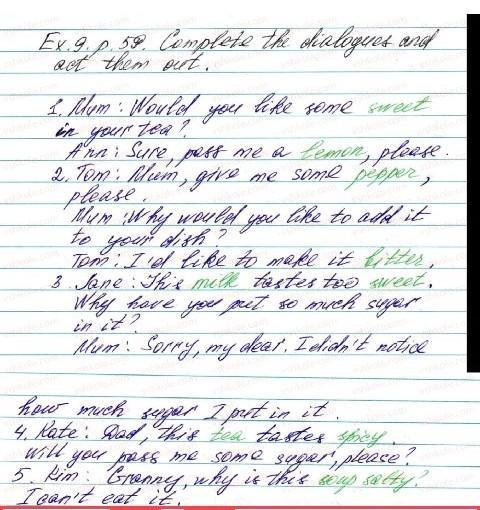 Ex. 9. p. 59. Complete the dialogues and
act them out.
1. Mum: Would you like some sweet
in your tea?
Ann: Sure, pass me a lemon, please.
2. Tom: Mum, give me some pepper,
please.
Mum: Why would you like to add it
to your dish?
Tom: I'd like to make it bitter.
3. Jane: This milk tastes too sweet.
Why have you put so much sugar
in it?
Mum: Sorry, my dear. I didn't notice
how much sugar I put in it.
4. Kate: Dad, this tea tastes spicy.
Will you pass me some sugar, please?
5. Kim: Granny, why is this soup salty?
I can't eat it.